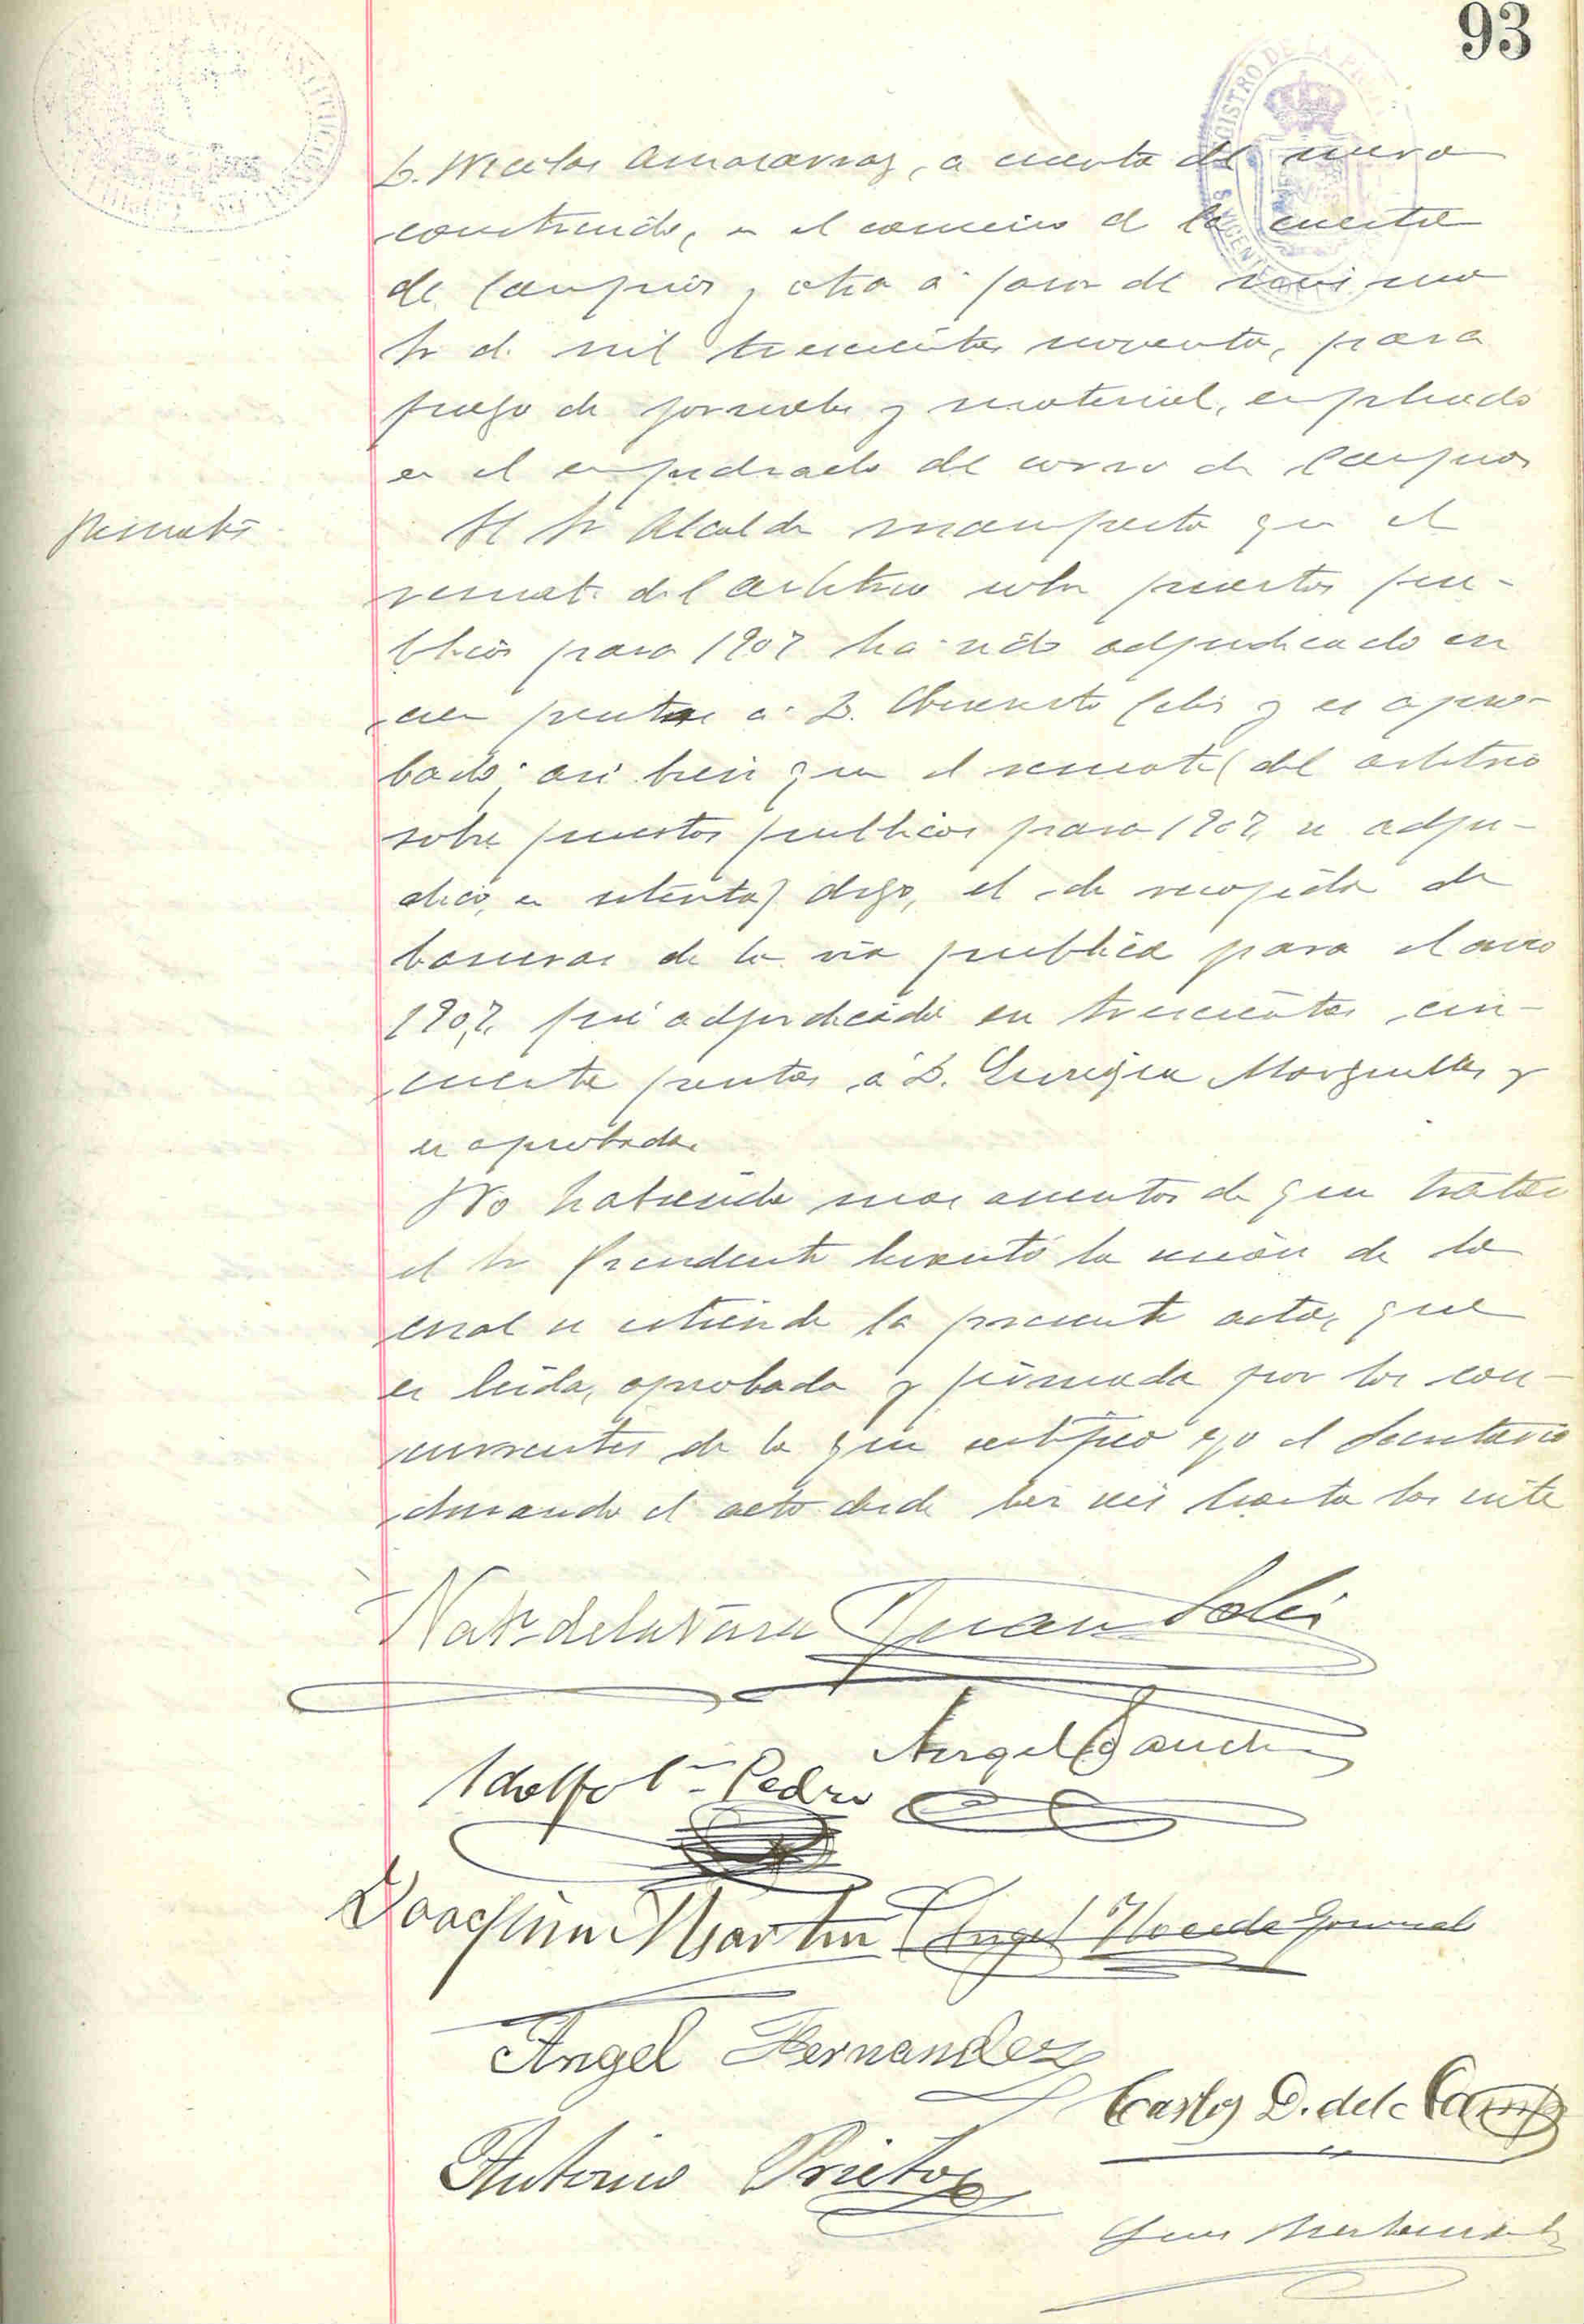 93
D. Nicolas Amararraz, a cuenta del muro
construido, en el camino de la cuesta
de Campios y otra a favor del mismo
Sr de mil trescientas noventa, para
pago de jornales y material, empleado
en el empedrado del corro de Campios
Remates
El Sr Alcalde manifiesta que el
remate del arbitrio sobre puestos pu-
blicos para 1907 ha sido adjudicado en
cien pesetas a D. Celis y es apro-
bado; asi bien que el remate (del arbitrio
sobre puestos publicos para 1907, se adju-
dicó, en setenta) digo, el de recogida de
basuras de la via publica para el año
1907, fué adjudicado en trescientas cin-
cuenta pesetas á D. Enrique Morquillas y
es aprobado.
No habiendo mas asuntos de que tratar
el Sr Presidente levantó la sesión de la
cual se estiende la presente acta, que
es leida, aprobada y firmada por los con-
currentes de la que certifico yo el Secretario
durando el acto desde las seis hasta las siete
Nat. de la Vara Juan Solis
Angel Sanchez
Adolfo Pedro
Joaquin Martin Angel
Angel Hernandez
Carlos D. del Campo
Antonio Prieto